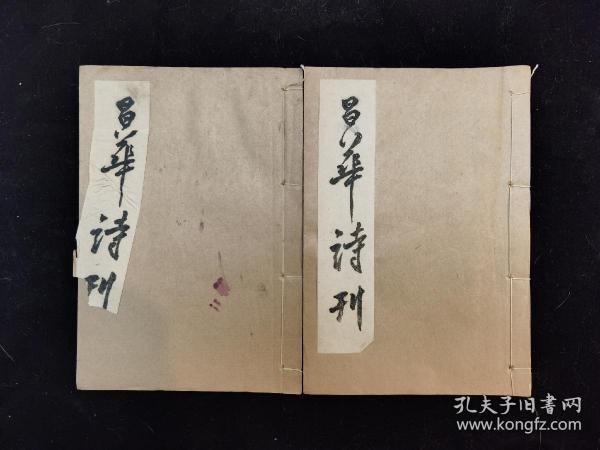 昌华诗刊
昌华诗刊
孔夫子旧書网
www.kongfz.com